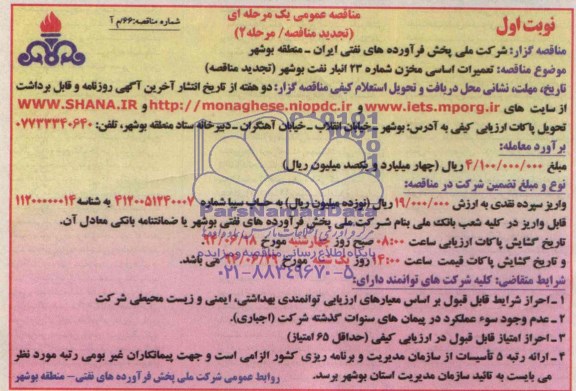 نوبت اول
مناقصه عمومی یک مرحله ای
(تجدید مناقصه/ مرحله ۲)
شماره مناقصه:۶۶/م آ
مناقصه گزار: شرکت ملی پخش فرآورده های نفتی ایران ـ منطقه بوشهر
موضوع مناقصه: تعمیرات اساسی مخزن شماره ۲۳ انبار نفت بوشهر (تجدید مناقصه)
تاریخ، مهلت، نشانی محل دریافت و تحویل استعلام کیفی مناقصه گزار: دو هفته از تاریخ انتشار آخرین آگهی روزنامه و قابل برداشت
از سایت های www.iets.mporg.ir و http://monaghese.niopdc.ir و WWW.SHANA.IR
تحویل پاکات ارزیابی کیفی به آدرس: بوشهر ـ خیابان انقلاب ـ خیابان آهنگران ـ دبیرخانه ستاد منطقه بوشهر، تلفن: ۰۷۷۳۳۳۴۰۶۴۰
برآورد معامله:
مبلغ ۴/۱۰۰/۰۰۰/۰۰۰ ریال (چهار میلیارد و یکصد میلیون ریال)
نوع و مبلغ تضمین شرکت در مناقصه:
واریز سپرده نقدی به ارزش ۱۹/۰۰۰/۰۰۰ ریال (نوزده میلیون ریال) به حساب سیبا شماره ۴۱۲۰۰۵۱۲۴۰۰۰۷ به شناسه ۱۱۲۰۰۰۰۰۰۱۴
قابل واریز در کلیه شعب بانک ملی بنام شرکت ملی پخش فرآورده های نفتی بوشهر یا ضمانتنامه بانکی معادل آن.
تاریخ گشایش پاکات ارزیابی ساعت ۰۸:۰۰ صبح روز چهارشنبه مورخ ۹۴/۰۶/۱۸
و تاریخ گشایش پاکات قیمت ساعت ۱۴:۰۰ روز یک شنبه مورخ ۹۴/۰۶/۲۹ می باشد.
شرایط متقاضی: کلیه شرکت های توانمند دارای:
۱ ـ احراز شرایط قابل قبول بر اساس معیارهای ارزیابی توانمندی بهداشتی، ایمنی و زیست محیطی شرکت
۲ ـ عدم وجود سوء عملکرد در پیمان های سنوات گذشته شرکت (اجباری).
۳ ـ احراز امتیاز قابل قبول در ارزیابی کیفی (حداقل ۶۵ امتیاز)
۴ ـ ارائه رتبه ۵ تأسیسات از سازمان مدیریت و برنامه ریزی کشور الزامی است و جهت پیمانکاران غیر بومی رتبه مورد نظر
می بایست به تائید سازمان مدیریت استان بوشهر برسد.
روابط عمومی شرکت ملی پخش فرآورده های نفتی ـ منطقه بوشهر
ParsNamadData
۰۲۱-۸۸۳۴۹۶۷۰-۵